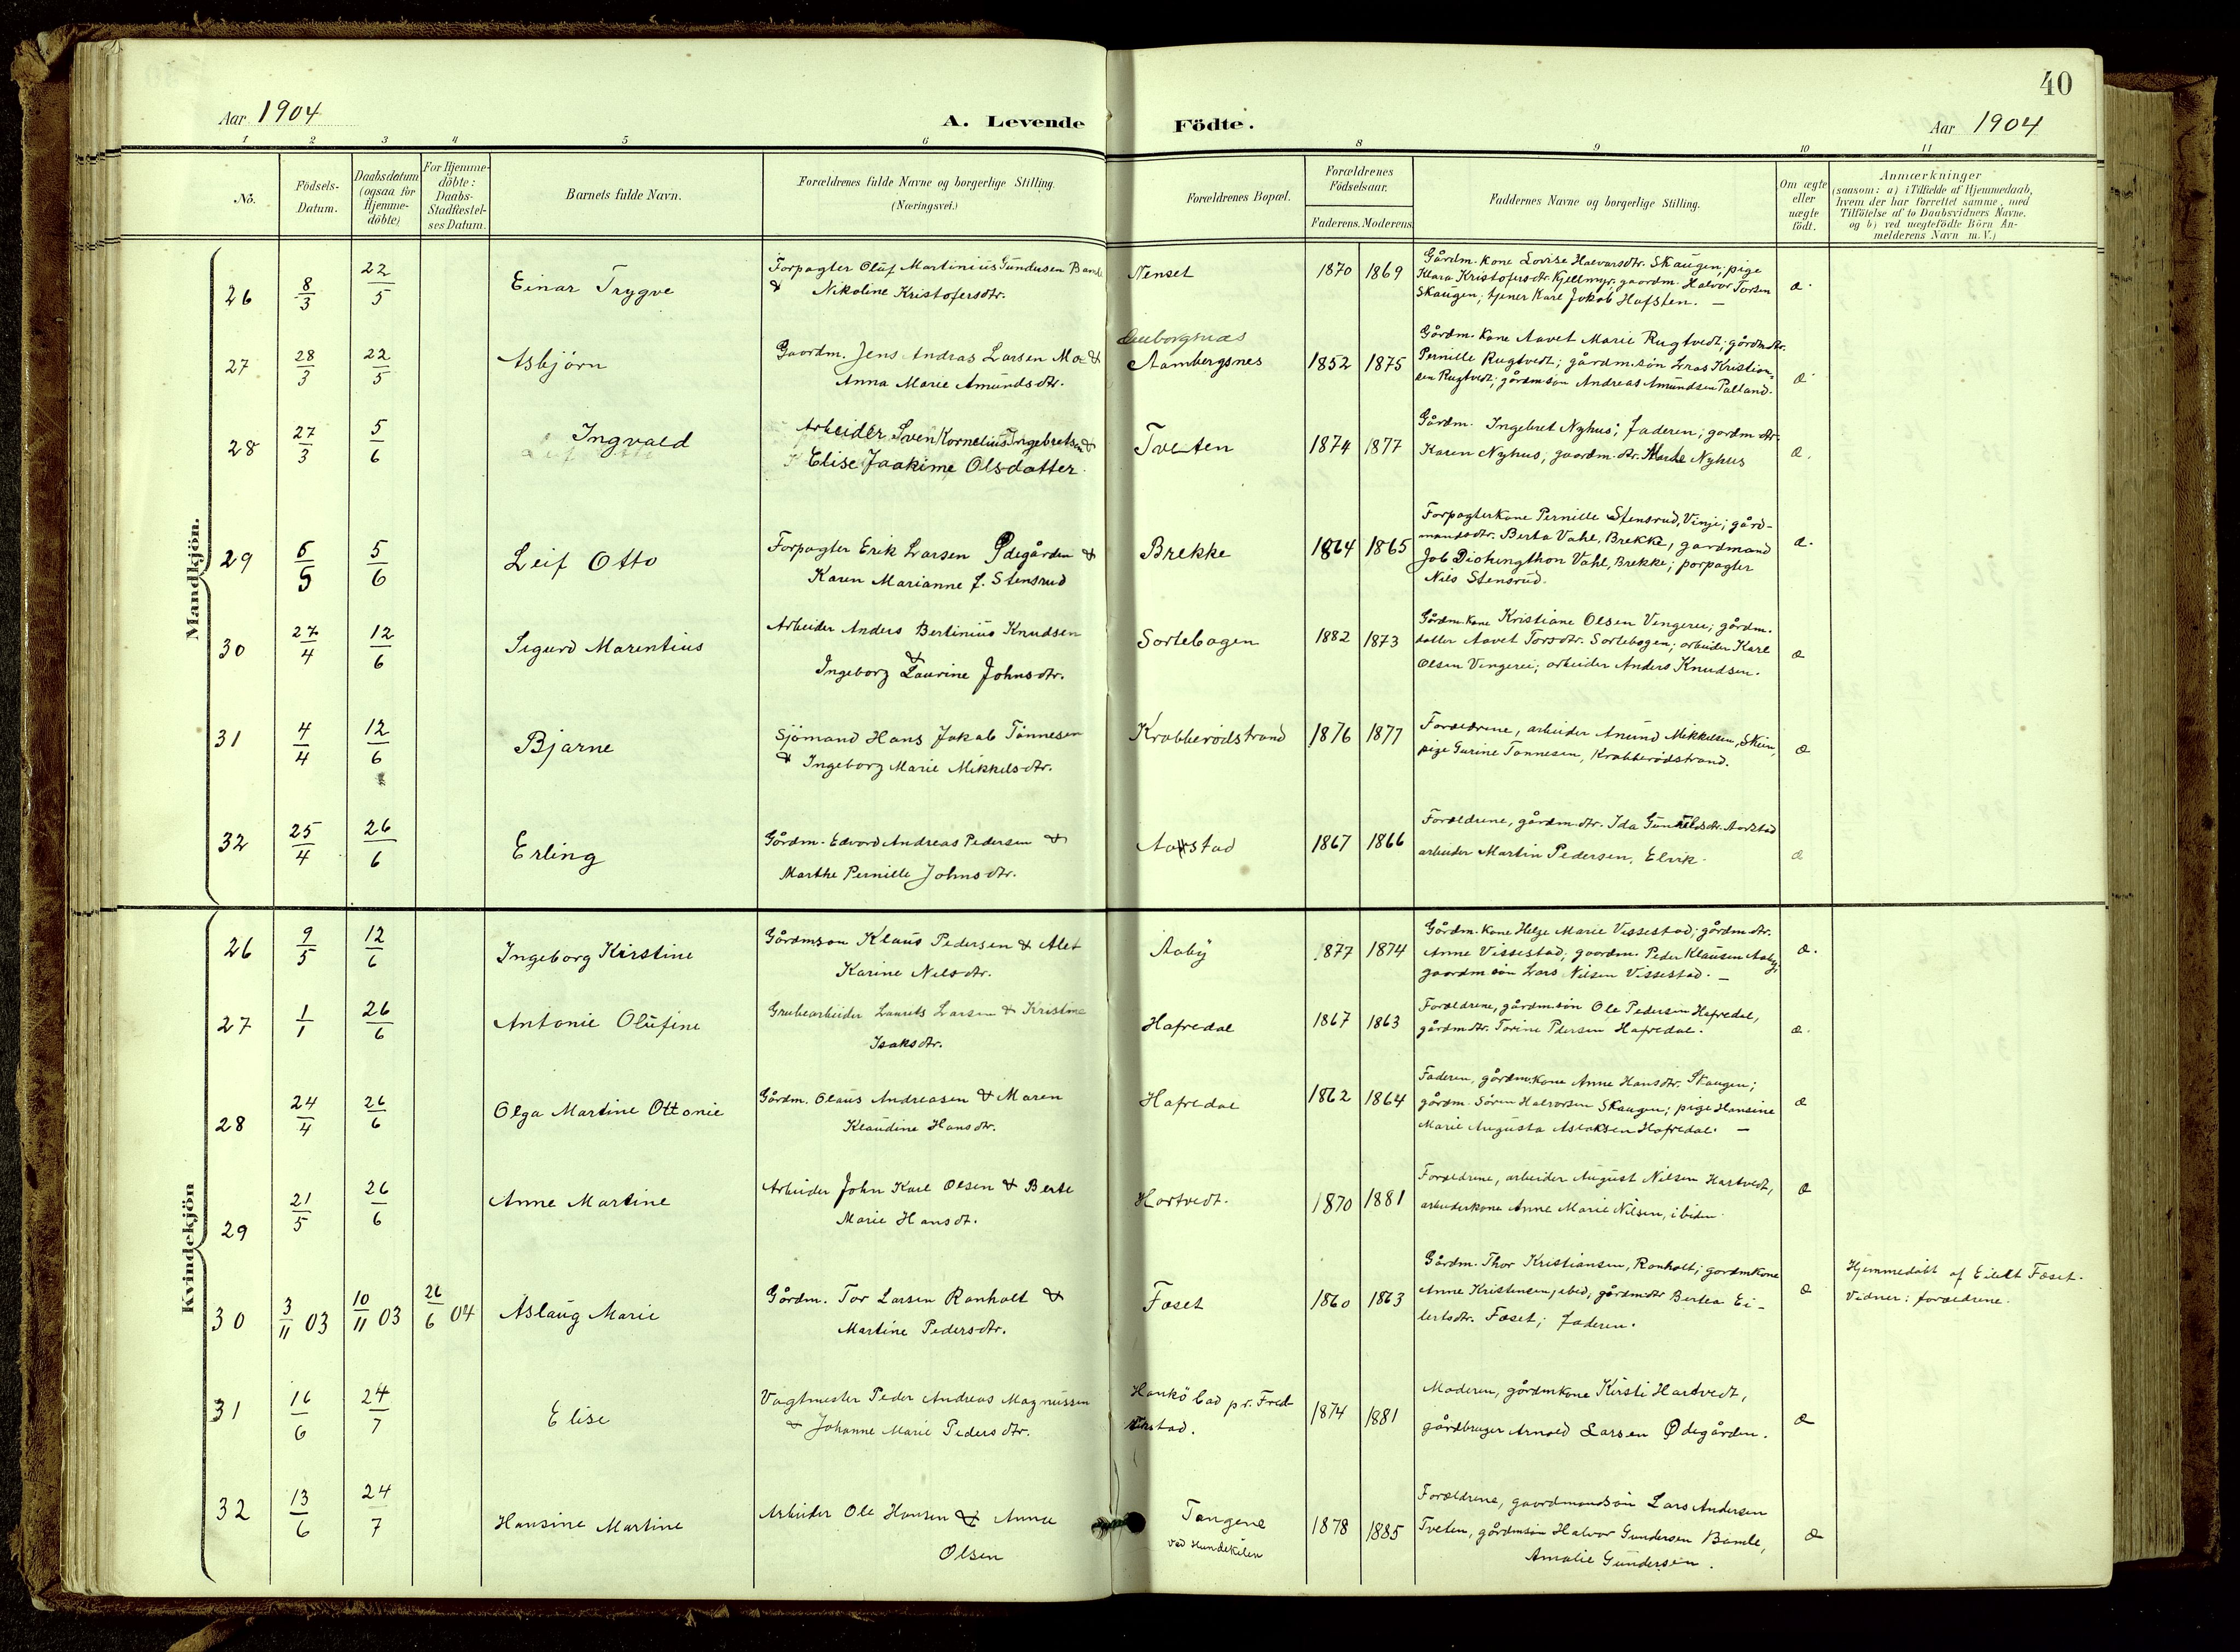 40
Aar 1904
A. Levende Födte.
Aar 1904
1 2 3 4 5 6 8 9 10 11
No.
Födsels-
Datum.
Daabsdatum
(ogsaa for
Hjemme-
döbte)
For Hjemme-
döbte:
Daabs-
Stadfæstel-
ses Datum.
Barnets fulde Navn.
Forældrenes fulde Navne og borgerlige Stilling.
(Næringsvei.)
Forældrenes Bopæl.
Forældrenes
Födselsaar.
Faderens. Moderens
Faddernes Navne og borgerlige Stilling.
Om ægte
eller
uægte
födt.
Anmærkninger
(saasom: a) i Tilfælde af Hjemmedaab,
hvem der har forrettet samme, med
Tilföielse af to Daabsvidners Navne.
og b) ved uægtefödte Börn An-
melderens Navn m. V.)
Mandkjön.
26 8/3 22/5 Einar Trygve
Forpagter Oluf Martinius Gundersen Bamle
& Nikoline Kristofersdtr.
Nenset 1870 1869
Gårdm. kone Lovise Halvorsdtr. Skaugen; pige
Klara Kristofersdtr. Gjellmyr; gaardm. Halvor Torsen
Skaugen; tjener Karl Jakob Hafsten. —
æ.
27 28/3 22/5 Asbjörn
Gaardm. Jens Andras Larsen Moe &
Anna Marie Amundsdtr.
Aambergsnes 1852 1875
Gårdm. kone Aavet Marie Rugtvedt; gårdm. dtr.
Pernille Rugtvedt; gårdm. sön Lras Kristian-
sen Rugtvedt; gårdm sön Andreas Amundsen Palland.
æ
28 27/3 5/6 Ingvald
Arbeider Sven Kornelius Ingebretsen &
Elise Joakime Olsdatter
Tveten 1874 1877
Gårdm. Ingebret Nyhus; Faderen; gardm dtr.
Karen Nyhus; gaardm. dtr. Marthe Nyhus
æ.
29 5/5 5/6 Leif Otto
Forpagter Erik Larsen Ödegården &
Karen Marianne f. Stensrud
Brekke 1864 1865
Forpagterkone Pernille Stensrud, Vinje; gård-
mandsdtr. Berta Vahl, Brekke; gardmand
Job Vahl, Brekke; forpagter
Nils Stensrud.
æ.
30 27/4 12/6 Sigurd Marentius
Arbeider Anders Bertinius Knudsen
&
Ingeborg Laurine Johnsdtr.
Sortebogen 1882 1873
Gårdm. kone Kristiane Olsen Vengerei; gårdm.
datter Aavet Torsdtr. Sortebogen; arbeider Karl
Olsen Vengerei; arbeider Anders Knudsen.
æ
31 4/4 12/6 Bjarne
Sjömand Hans Jakob Tönnesen
& Ingeborg Marie Mikkelsdtr.
Krabberödstrand 1876 1877
Forældrene, arbeider Anund Mikkelsen, Skien,
pige Gurine Tönnesen, Krabberödstrand.
æ
32 25/4 26/6 Erling
Gårdm. Edvard Andreas Pedersen &
Marthe Pernille Johnsdtr.
Aarstad 1867 1866
Forældrene, gårdm. dtr. Ida Gunuldsdtr. Aarstad
arbeider Martin Pedersen, Elvik.
æ
Kvindekjön
26 9/5 12/6 Ingeborg Kirstine
Gårdmson Klaus Pedersen & Alet
Karine Nilsdtr.
Aaby 1877 1874
Gårdm. kone Helge Marie Vissestad; gårdm dtr.
Anne Vissestad; gaardm. Peder Klausen Aaby;
gaardm sön Lars Nilsen Vissestad. —
æ.
27 1/1 26/6 Antonie Olufine
Grubearbeider Laurits Larsen & Kristine
Isaksdtr.
Hafredal 1867 1863
Forældrene, gårdm sön Ole Pedersen Hafredal,
gårdm dtr. Torine Pdersen Hafredal.
æ.
28 24/4 26/6 Olga Martine Ottonie
Gårdm. Olaus Andreasen & Maren
Klaudine Hansdtr.
Hafredal 1862 1864
Faderen, gårdm. kone Anne Hansdtr. Skaugen;
gårdm. Sören Halvorsen Skaugen; pige Hansine
Marie Augusta Aslaksen Hafredal. —
æ
29 21/5 26/6 Anne Martine
Arbeider John Karl Olsen & Berte
Marie Hansdt.
Hartvedt. 1870 1881
Forældrene, arbeider August Nilsen Hartvedt,
arbeiderkone Anne Marie Nilsen, ibidm.
æ
30 3/11 03 10/11 03 26/6 04 Aslaug Marie
Gårdm. Tor Larsen Ronholt &
Martine Pedersdtr.
Foset 1860 1863
Gårdm. Thor Kristiansen, Ronholt; gardmkone
Anne Kristensen, ibid; gårdm dtr Bertea Ei-
lertsdtr. Foset; Faderen.
æ
Hjemmedöbt af Eilert Foset.
Vidner: forældrene.
31 16/6 24/7 Elise
Vagtmester Peder Andreas Magnussen
& Johanne Marie Pedersdtr.
Hankö bad pr. Fred-
rikstad.
1874 1881
Moderen, gårdmkone Kirsti Hartvedt,
gårdbruger Arnold Larsen Ødegården.
æ
32 13/6 24/7 Hansine Martine
Arbeider Ole Hansen & Anna
Olsen
Tangene
ved Hundekilen
1878 1885
Forældrene, gaardmandsön Lars Andersen
Tveten, gårdmsön Halvor Gundersen Bamle,
Amalie Gundersen.
æ